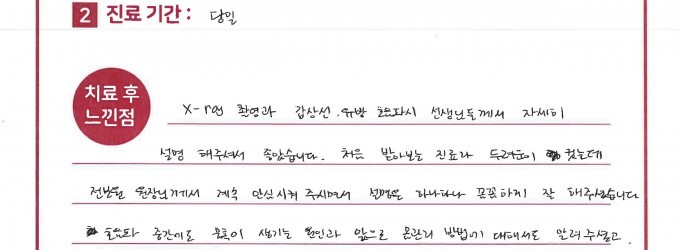 2 진료 기간 : 당일
치료 후
느낀점
X-ray 촬영과 갑상선, 유방 초음파시 선생님들께서 자세히
설명 해주셔서 좋았습니다. 처음 받아보는 진료라 두려움이 컸는데
전보윤 원장님께서 계속 안심시켜 주시면서 설명을 하나하나 꼼꼼하게 잘 해주셨습니다
초음파 중간에도 목혹이 생기는 원인과 앞으로 몸관리 방법에 대해서도 알려주셨고